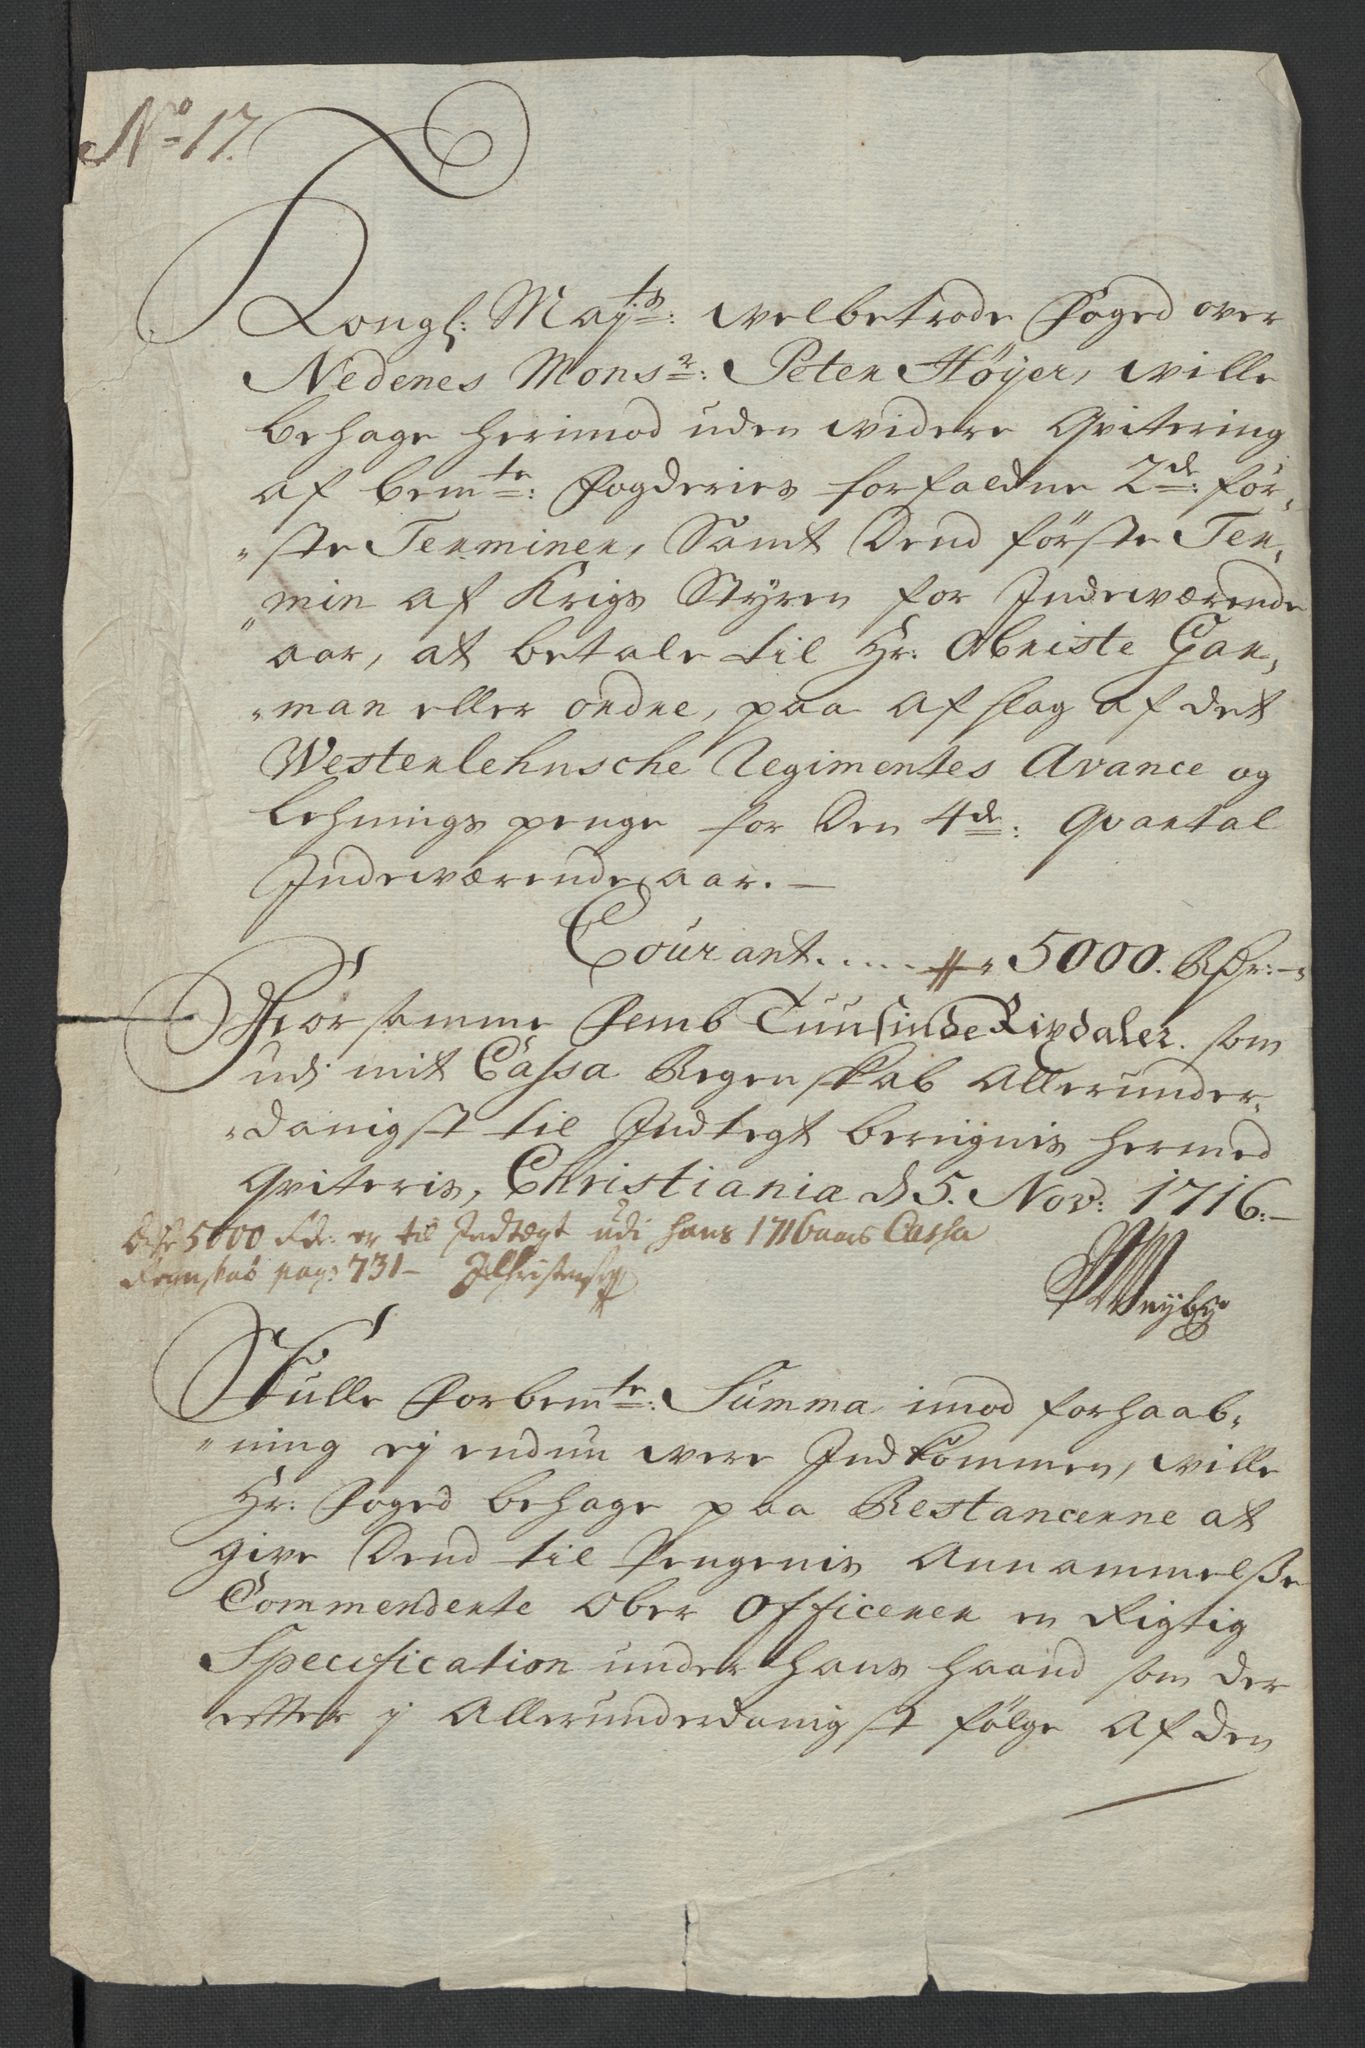 No 17.
Kongl: Mayts: welbetrode Foged over
Nedenes Monsr: Peter Höyer, wille
behage herimod uden widere Qvitering
af bemte: Fogderies forfaldne 2de: för-
ste Terminer, Samt Dend förste Ter-
min af Krigs Styren for Indewærende
aar, at betale til Hr: Obriste Gar-
man eller ordre, paa afslag af det
Westerlehnsche Regimentes Avance og
Lehnings penge for Den 4de: Qvartal
Indewærende aar. —
Courant..... 5000. Rdr: -
For samme Femb Tuusinde Rixdaler. som
udj mit Cassa Regenskab Allerunder-
danigst til Indtegt beregnis hermed
Qviteris, Christiania d 5. Nov: 1716: —
Disse 5000 Rdr: er til Indtægt udi hans 1716 aars Cassa
Regnskab pag: 731 — JChristensen
Skulle Forbemte: Summa imod forhaab-
ning ej endnu were Indkommen, wille
Hr: Foged behage paa Restancerne at
give Dend til Pengenis Annammelsse
Commenderte Ober Officerer en Rigtig
Specification under hans haand som der
effter j Allerunderdanigst fölge af den